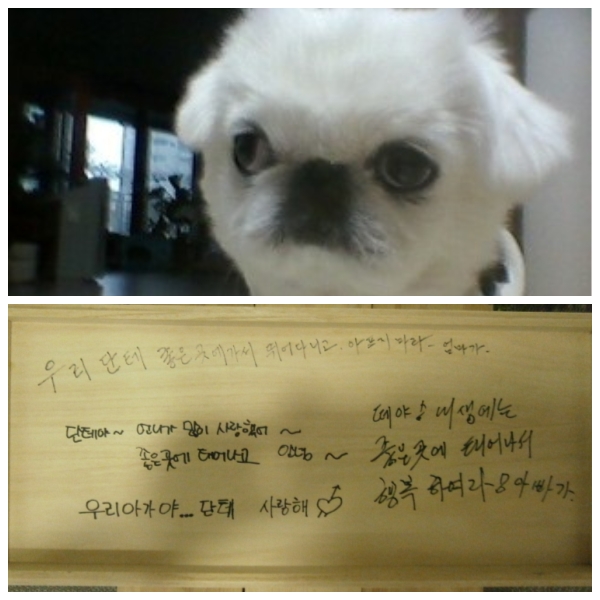 우리 단테 좋은곳에가서 뛰어다니고. 아프지마라- 엄마가.
단테야~ 언니가 많이 사랑했어~
좋은곳에 태어나고 안녕~
우리아가야... 단테 사랑해
떼야 내생에는
좋은곳에 태어나서
행복 하여라- 아빠가.